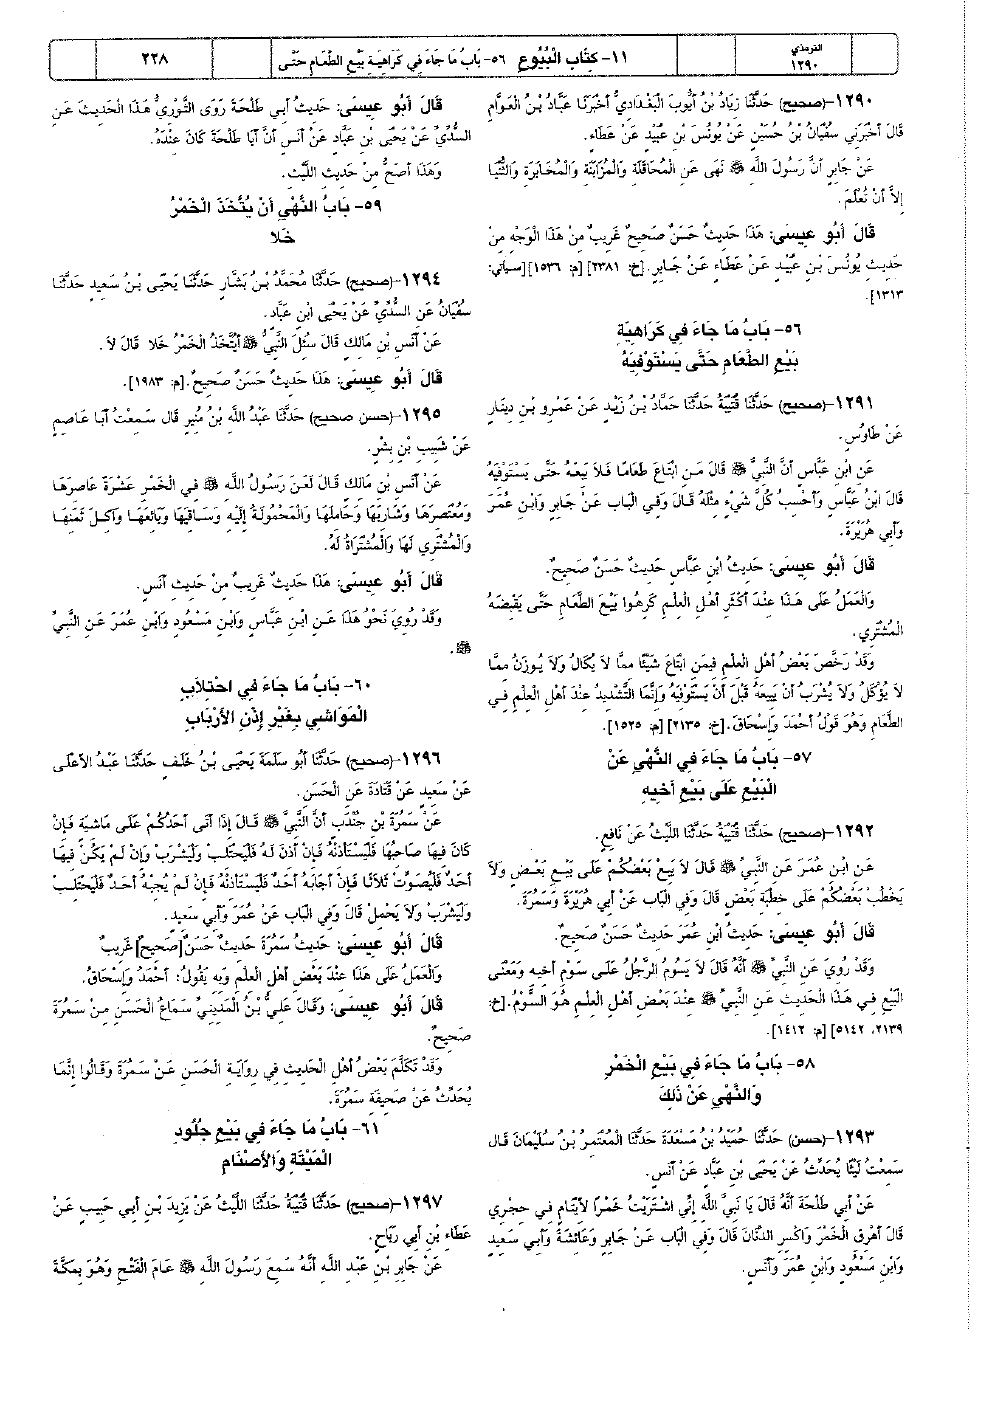 الترمذي
١٢٩٠
١١- كتاب البيوع ٥٦- باب ما جاء في كراهية بيع الطعام حتى
٢٢٨
١٢٩٠-(صحيح) حَدَّثَنَا زِيَادُ بْنُ أَيُّوبَ الْبَغْدَادِيُّ أَخْبَرَنَا عَبَّادُ بْنُ الْعَوَّامِ
قَالَ أَخْبَرَنِي سُفْيَانُ بْنُ حُسَيْنٍ عَنْ يُونُسَ بْنِ عُبَيْدٍ عَنْ عَطَاءٍ.
عَنْ جَابِرٍ أَنَّ رَسُولَ اللَّهِ ﷺ نَهَى عَنِ الْمُحَاقَلَةِ وَالْمُزَابَنَةِ وَالْمُخَابَرَةِ وَالثُّنْيَا
إِلاَّ أَنْ تُعْلَمَ.
قَالَ أَبُو عِيسَى: هَذَا حَدِيثٌ حَسَنٌ صَحِيحٌ غَرِيبٌ مِنْ هَذَا الْوَجْهِ مِنْ
حَدِيثِ يُونُسَ بْنِ عُبَيْدٍ عَنْ عَطَاءٍ عَنْ جَابِرٍ. [خ: ٢٣٨١] [م: ١٥٣٦] [سيأتي:
١٣١٣].
٥٦- بَابُ مَا جَاءَ فِي كَرَاهِيَةِ
بَيْعِ الطَّعَامِ حَتَّى يَسْتَوْفِيَهُ
١٢٩١-(صحيح) حَدَّثَنَا قُتَيْبَةُ حَدَّثَنَا حَمَّادُ بْنُ زَيْدٍ عَنْ عَمْرِو بْنِ دِينَارٍ
عَنْ طَاوُسٍ.
عَنِ ابْنِ عَبَّاسٍ أَنَّ النَّبِيَّ ﷺ قَالَ مَنِ ابْتَاعَ طَعَامًا فَلاَ يَبِعْهُ حَتَّى يَسْتَوْفِيَهُ
قَالَ ابْنُ عَبَّاسٍ وَأَحْسِبُ كُلَّ شَيْءٍ مِثْلَهُ قَالَ وَفِي الْبَابِ عَنْ جَابِرٍ وَابْنِ عُمَرَ
وَأَبِي هُرَيْرَةَ.
قَالَ أَبُو عِيسَى: حَدِيثُ ابْنِ عَبَّاسٍ حَدِيثٌ حَسَنٌ صَحِيحٌ.
وَالْعَمَلُ عَلَى هَذَا عِنْدَ أَكْثَرِ أَهْلِ الْعِلْمِ كَرِهُوا بَيْعَ الطَّعَامِ حَتَّى يَقْبِضَهُ
الْمُشْتَرِي.
وَقَدْ رَخَّصَ بَعْضُ أَهْلِ الْعِلْمِ فِيمَنِ ابْتَاعَ شَيْئًا مِمَّا لاَ يُكَالُ وَلاَ يُوزَنُ مِمَّا
لاَ يُؤْكَلُ وَلاَ يُشْرَبُ أَنْ يَبِيعَهُ قَبْلَ أَنْ يَسْتَوْفِيَهُ وَإِنَّمَا التَّشْدِيدُ عِنْدَ أَهْلِ الْعِلْمِ فِي
الطَّعَامِ وَهُوَ قَوْلُ أَحْمَدَ وَإِسْحَاقَ. [خ: ٢١٣٥] [م: ١٥٢٥].
٥٧- بَابُ مَا جَاءَ فِي النَّهْيِ عَنْ
الْبَيْعِ عَلَى بَيْعِ أَخِيهِ
١٢٩٢-(صحيح) حَدَّثَنَا قُتَيْبَةُ حَدَّثَنَا اللَّيْثُ عَنْ نَافِعٍ.
عَنِ ابْنِ عُمَرَ عَنِ النَّبِيِّ ﷺ قَالَ لاَ يَبِعْ بَعْضُكُمْ عَلَى بَيْعِ بَعْضٍ وَلاَ
يَخْطُبْ بَعْضُكُمْ عَلَى خِطْبَةِ بَعْضٍ قَالَ وَفِي الْبَابِ عَنْ أَبِي هُرَيْرَةَ وَسَمُرَةَ.
قَالَ أَبُو عِيسَى: حَدِيثُ ابْنِ عُمَرَ حَدِيثٌ حَسَنٌ صَحِيحٌ.
وَقَدْ رُوِيَ عَنِ النَّبِيِّ ﷺ أَنَّهُ قَالَ لاَ يَسُومُ الرَّجُلُ عَلَى سَوْمِ أَخِيهِ وَمَعْنَى
الْبَيْعِ فِي هَذَا الْحَدِيثِ عَنِ النَّبِيِّ ﷺ عِنْدَ بَعْضِ أَهْلِ الْعِلْمِ هُوَ السَّوْمُ. [خ:
٢١٣٩، ٥١٤٢] [م: ١٤١٢].
٥٨- بَابُ مَا جَاءَ فِي بَيْعِ الْخَمْرِ
وَالنَّهْيِ عَنْ ذَلِكَ
١٢٩٣-(حسن) حَدَّثَنَا حُمَيْدُ بْنُ مَسْعَدَةَ حَدَّثَنَا الْمُعْتَمِرُ بْنُ سُلَيْمَانَ قَالَ
سَمِعْتُ لَيْثًا يُحَدِّثُ عَنْ يَحْيَى بْنِ عَبَّادٍ عَنْ أَنَسٍ.
عَنْ أَبِي طَلْحَةَ أَنَّهُ قَالَ يَا نَبِيَّ اللَّهِ إِنِّي اشْتَرَيْتُ خَمْرًا لأَيْتَامٍ فِي حِجْرِي
قَالَ أَهْرِقِ الْخَمْرَ وَاكْسِرِ الدِّنَانَ قَالَ وَفِي الْبَابِ عَنْ جَابِرٍ وَعَائِشَةَ وَأَبِي سَعِيدٍ
وَابْنِ مَسْعُودٍ وَابْنِ عُمَرَ وَأَنَسٍ.
قَالَ أَبُو عِيسَى: حَدِيثُ أَبِي طَلْحَةَ رَوَى الثَّوْرِيُّ هَذَا الْحَدِيثَ عَنِ
السُّدِّيِّ عَنْ يَحْيَى بْنِ عَبَّادٍ عَنْ أَنَسٍ أَنَّ أَبَا طَلْحَةَ كَانَ عِنْدَهُ.
وَهَذَا أَصَحُّ مِنْ حَدِيثِ اللَّيْثِ.
٥٩- بَابُ النَّهْيِ أَنْ يُتَّخَذَ الْخَمْرُ
خَلا
١٢٩٤-(صحيح) حَدَّثَنَا مُحَمَّدُ بْنُ بَشَّارٍ حَدَّثَنَا يَحْيَى بْنُ سَعِيدٍ حَدَّثَنَا
سُفْيَانُ عَنِ السُّدِّيِّ عَنْ يَحْيَى ابْنِ عَبَّادٍ.
عَنْ أَنَسِ بْنِ مَالِكٍ قَالَ سُئِلَ النَّبِيُّ ﷺ أَيُتَّخَذُ الْخَمْرُ خَلا قَالَ لاَ.
قَالَ أَبُو عِيسَى: هَذَا حَدِيثٌ حَسَنٌ صَحِيحٌ. [م: ١٩٨٣].
١٢٩٥-(حسن صحيح) حَدَّثَنَا عَبْدُ اللَّهِ بْنُ مُنِيرٍ قَال سَمِعْتُ أَبَا عَاصِمٍ
عَنْ شَبِيبِ بْنِ بِشْرٍ.
عَنْ أَنَسِ بْنِ مَالِكٍ قَالَ لَعَنَ رَسُولُ اللَّهِ ﷺ فِي الْخَمْرِ عَشْرَةً عَاصِرَهَا
وَمُعْتَصِرَهَا وَشَارِبَهَا وَحَامِلَهَا وَالْمَحْمُولَةُ إِلَيْهِ وَسَاقِيَهَا وَبَائِعَهَا وَآكِلَ ثَمَنِهَا
وَالْمُشْتَرِي لَهَا وَالْمُشْتَرَاةُ لَهُ.
قَالَ أَبُو عِيسَى: هَذَا حَدِيثٌ غَرِيبٌ مِنْ حَدِيثِ أَنَسٍ.
وَقَدْ رُوِيَ نَحْوُ هَذَا عَنِ ابْنِ عَبَّاسٍ وَابْنِ مَسْعُودٍ وَابْنِ عُمَرَ عَنِ النَّبِيِّ
ﷺ.
٦٠- بَابُ مَا جَاءَ فِي احْتِلاَبِ
الْمَوَاشِي بِغَيْرِ إِذْنِ الأَرْبَابِ
١٢٩٦-(صحيح) حَدَّثَنَا أَبُو سَلَمَةَ يَحْيَى بْنُ خَلَفٍ حَدَّثَنَا عَبْدُ الأَعْلَى
عَنْ سَعِيدٍ عَنْ قَتَادَةَ عَنِ الْحَسَنِ.
عَنْ سَمُرَةَ بْنِ جُنْدَبٍ أَنَّ النَّبِيَّ ﷺ قَالَ إِذَا أَتَى أَحَدُكُمْ عَلَى مَاشِيَةٍ فَإِنْ
كَانَ فِيهَا صَاحِبُهَا فَلْيَسْتَأْذِنْهُ فَإِنْ أَذِنَ لَهُ فَلْيَحْتَلِبْ وَلْيَشْرَبْ وَإِنْ لَمْ يَكُنْ فِيهَا
أَحَدٌ فَلْيُصَوِّتْ ثَلاَثًا فَإِنْ أَجَابَهُ أَحَدٌ فَلْيَسْتَأْذِنْهُ فَإِنْ لَمْ يُجِبْهُ أَحَدٌ فَلْيَحْتَلِبْ
وَلْيَشْرَبْ وَلاَ يَحْمِلْ قَالَ وَفِي الْبَابِ عَنْ عُمَرَ وَأَبِي سَعِيدٍ.
قَالَ أَبُو عِيسَى: حَدِيثُ سَمُرَةَ حَدِيثٌ حَسَنٌ [صَحِيحٌ] غَرِيبٌ
وَالْعَمَلُ عَلَى هَذَا عِنْدَ بَعْضِ أَهْلِ الْعِلْمِ وَبِهِ يَقُولُ: أَحْمَدُ وَإِسْحَاقُ.
قَالَ أَبُو عِيسَى: وَقَالَ عَلِيُّ بْنُ الْمَدِينِيِّ سَمَاعُ الْحَسَنِ مِنْ سَمُرَةَ
صَحِيحٌ.
وَقَدْ تَكَلَّمَ بَعْضُ أَهْلِ الْحَدِيثِ فِي رِوَايَةِ الْحَسَنِ عَنْ سَمُرَةَ وَقَالُوا إِنَّمَا
يُحَدِّثُ عَنْ صَحِيفَةِ سَمُرَةَ.
٦١- بَابُ مَا جَاءَ فِي بَيْعِ جُلُودِ
الْمَيْتَةِ وَالأَصْنَامِ
١٢٩٧-(صحيح) حَدَّثَنَا قُتَيْبَةُ حَدَّثَنَا اللَّيْثُ عَنْ يَزِيدَ بْنِ أَبِي حَبِيبٍ عَنْ
عَطَاءِ بْنِ أَبِي رَبَاحٍ.
عَنْ جَابِرِ بْنِ عَبْدِ اللَّهِ أَنَّهُ سَمِعَ رَسُولَ اللَّهِ ﷺ عَامَ الْفَتْحِ وَهُوَ بِمَكَّةَ